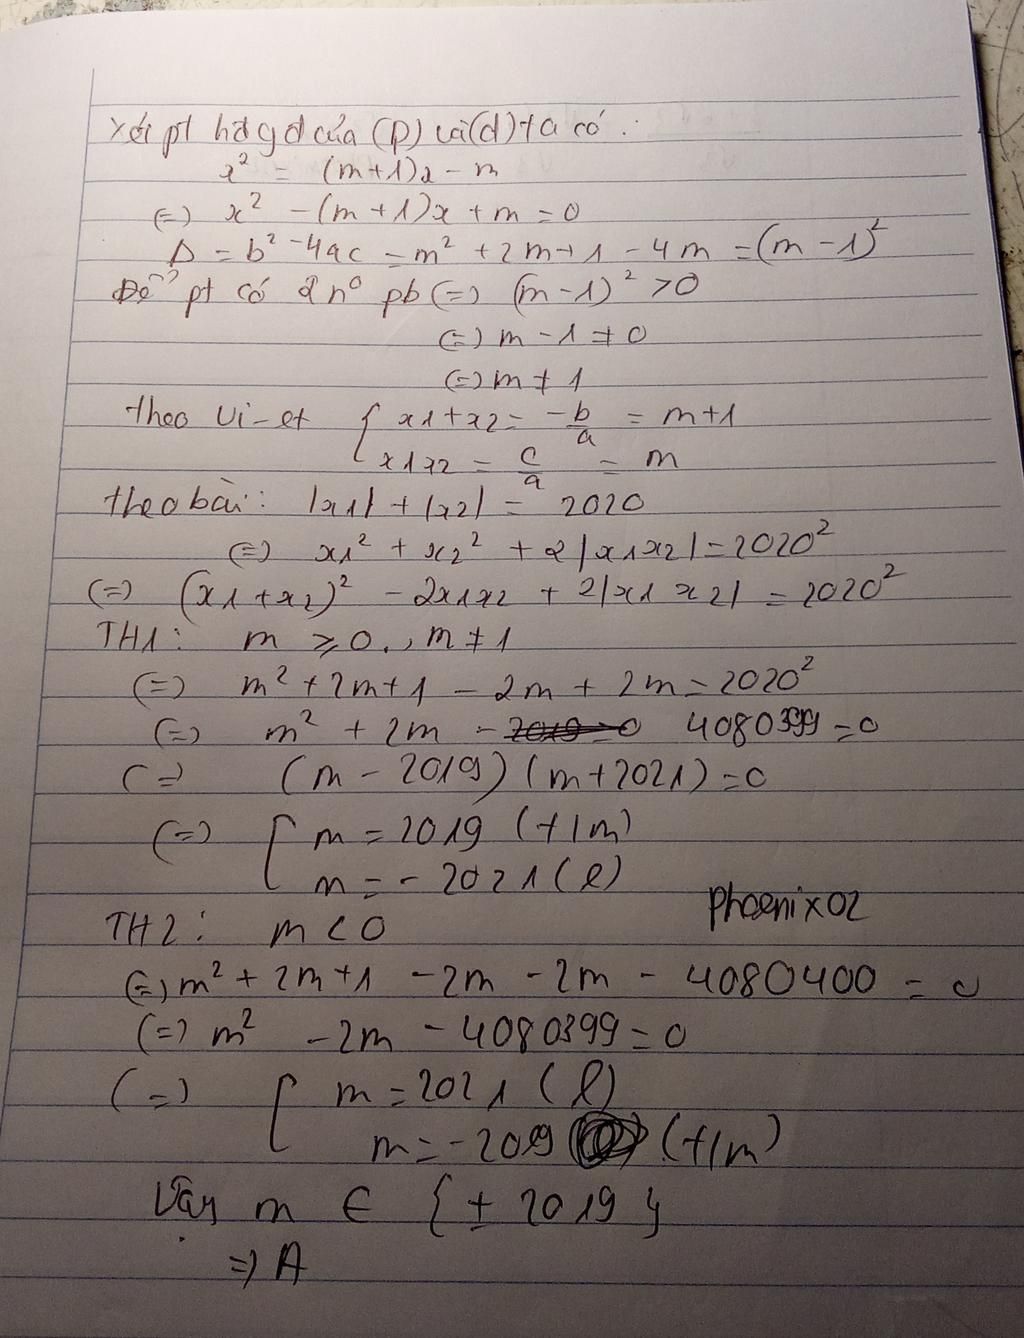 Xét pt hđgđ của (P) và (d) ta có :
x² = (m+1)x - m
(=) x² - (m+1)x + m = 0
Δ = b² - 4ac = m² + 2m+1 - 4m = (m-1)²
Để pt có 2 n⁰ pb (=) (m-1)² > 0
(=) m - 1 ≠ 0
(=) m ≠ 1
theo Vi-et { x1+x2 = -b/a = m+1
x1x2 = c/a = m
theo bài: |x1| + |x2| = 2020
(=) x1² + x2² + 2|x1x2| = 2020²
(=) (x1+x2)² - 2x1x2 + 2|x1 x2| = 2020²
TH1: m ≥ 0, m ≠ 1
(=) m² + 2m+1 - 2m + 2m = 2020²
(=) m² + 2m - 4080399 = 0
(=) (m - 2019) (m+2021) = 0
(=) [ m = 2019 (t/m)
m = - 2021 (l)
Phoenix02
TH2: m < 0
(=) m² + 2m+1 - 2m - 2m - 4080400 = 0
(=) m² - 2m - 4080399 = 0
(=) [ m = 2021 (l)
m = -2019 (t/m)
Vậy m ∈ {± 2019}
=) A